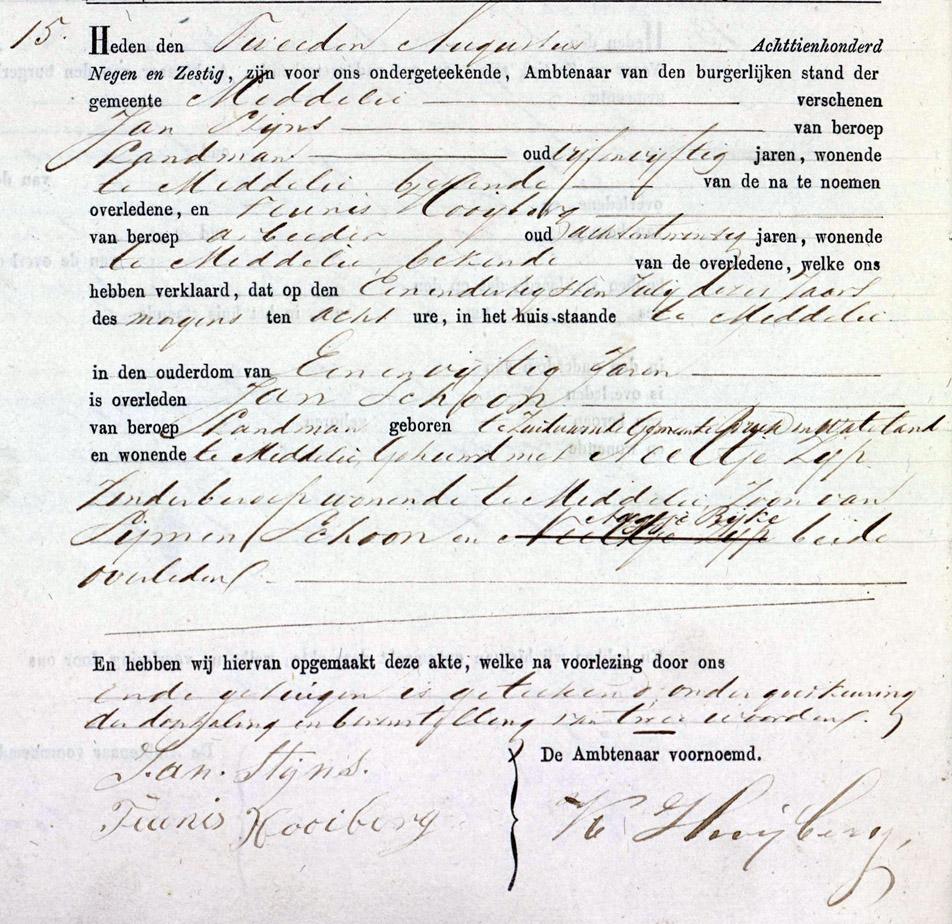 15. Heden den Tweeden Augustus Achttienhonderd
Negen en Zestig, zijn voor ons ondergeteekende, Ambtenaar van den burgerlijken stand der
gemeente Middelie verschenen
Jan Stijns van beroep
Landman oud vijfenvijftig jaren, wonende
te Middelie bekende van de na te noemen
overledene, en Teunis Hooijberg
van beroep arbeider oud achtentwintig jaren, wonende
te Middelie, bekende van de overledene, welke ons
hebben verklaard, dat op den Eenendertigsten Julij dezes jaars
des morgens ten acht ure, in het huis staande te Middelie
in den ouderdom van Eenenvijftig Jaren
is overleden Jan Schoon
van beroep Landman geboren te Zuiderwoude Gemeente Broek in Waterland
en wonende te Middelie, Gehuwd met Neeltje Zijp
Zonder beroep wonende te Middelie, Zoon van
Aagtje Rijke
Sijmen Schoon en Neeltje Zijp beide
overleden.
En hebben wij hiervan opgemaakt deze akte, welke na voorlezing door ons
ende getuigen is geteekend, onder goedkeuring
der doorhaling en bovenstelling van twee woorden.
Jan. Stijns.
De Ambtenaar voornoemd.
Teunis Hooiberg
K Hooijberg